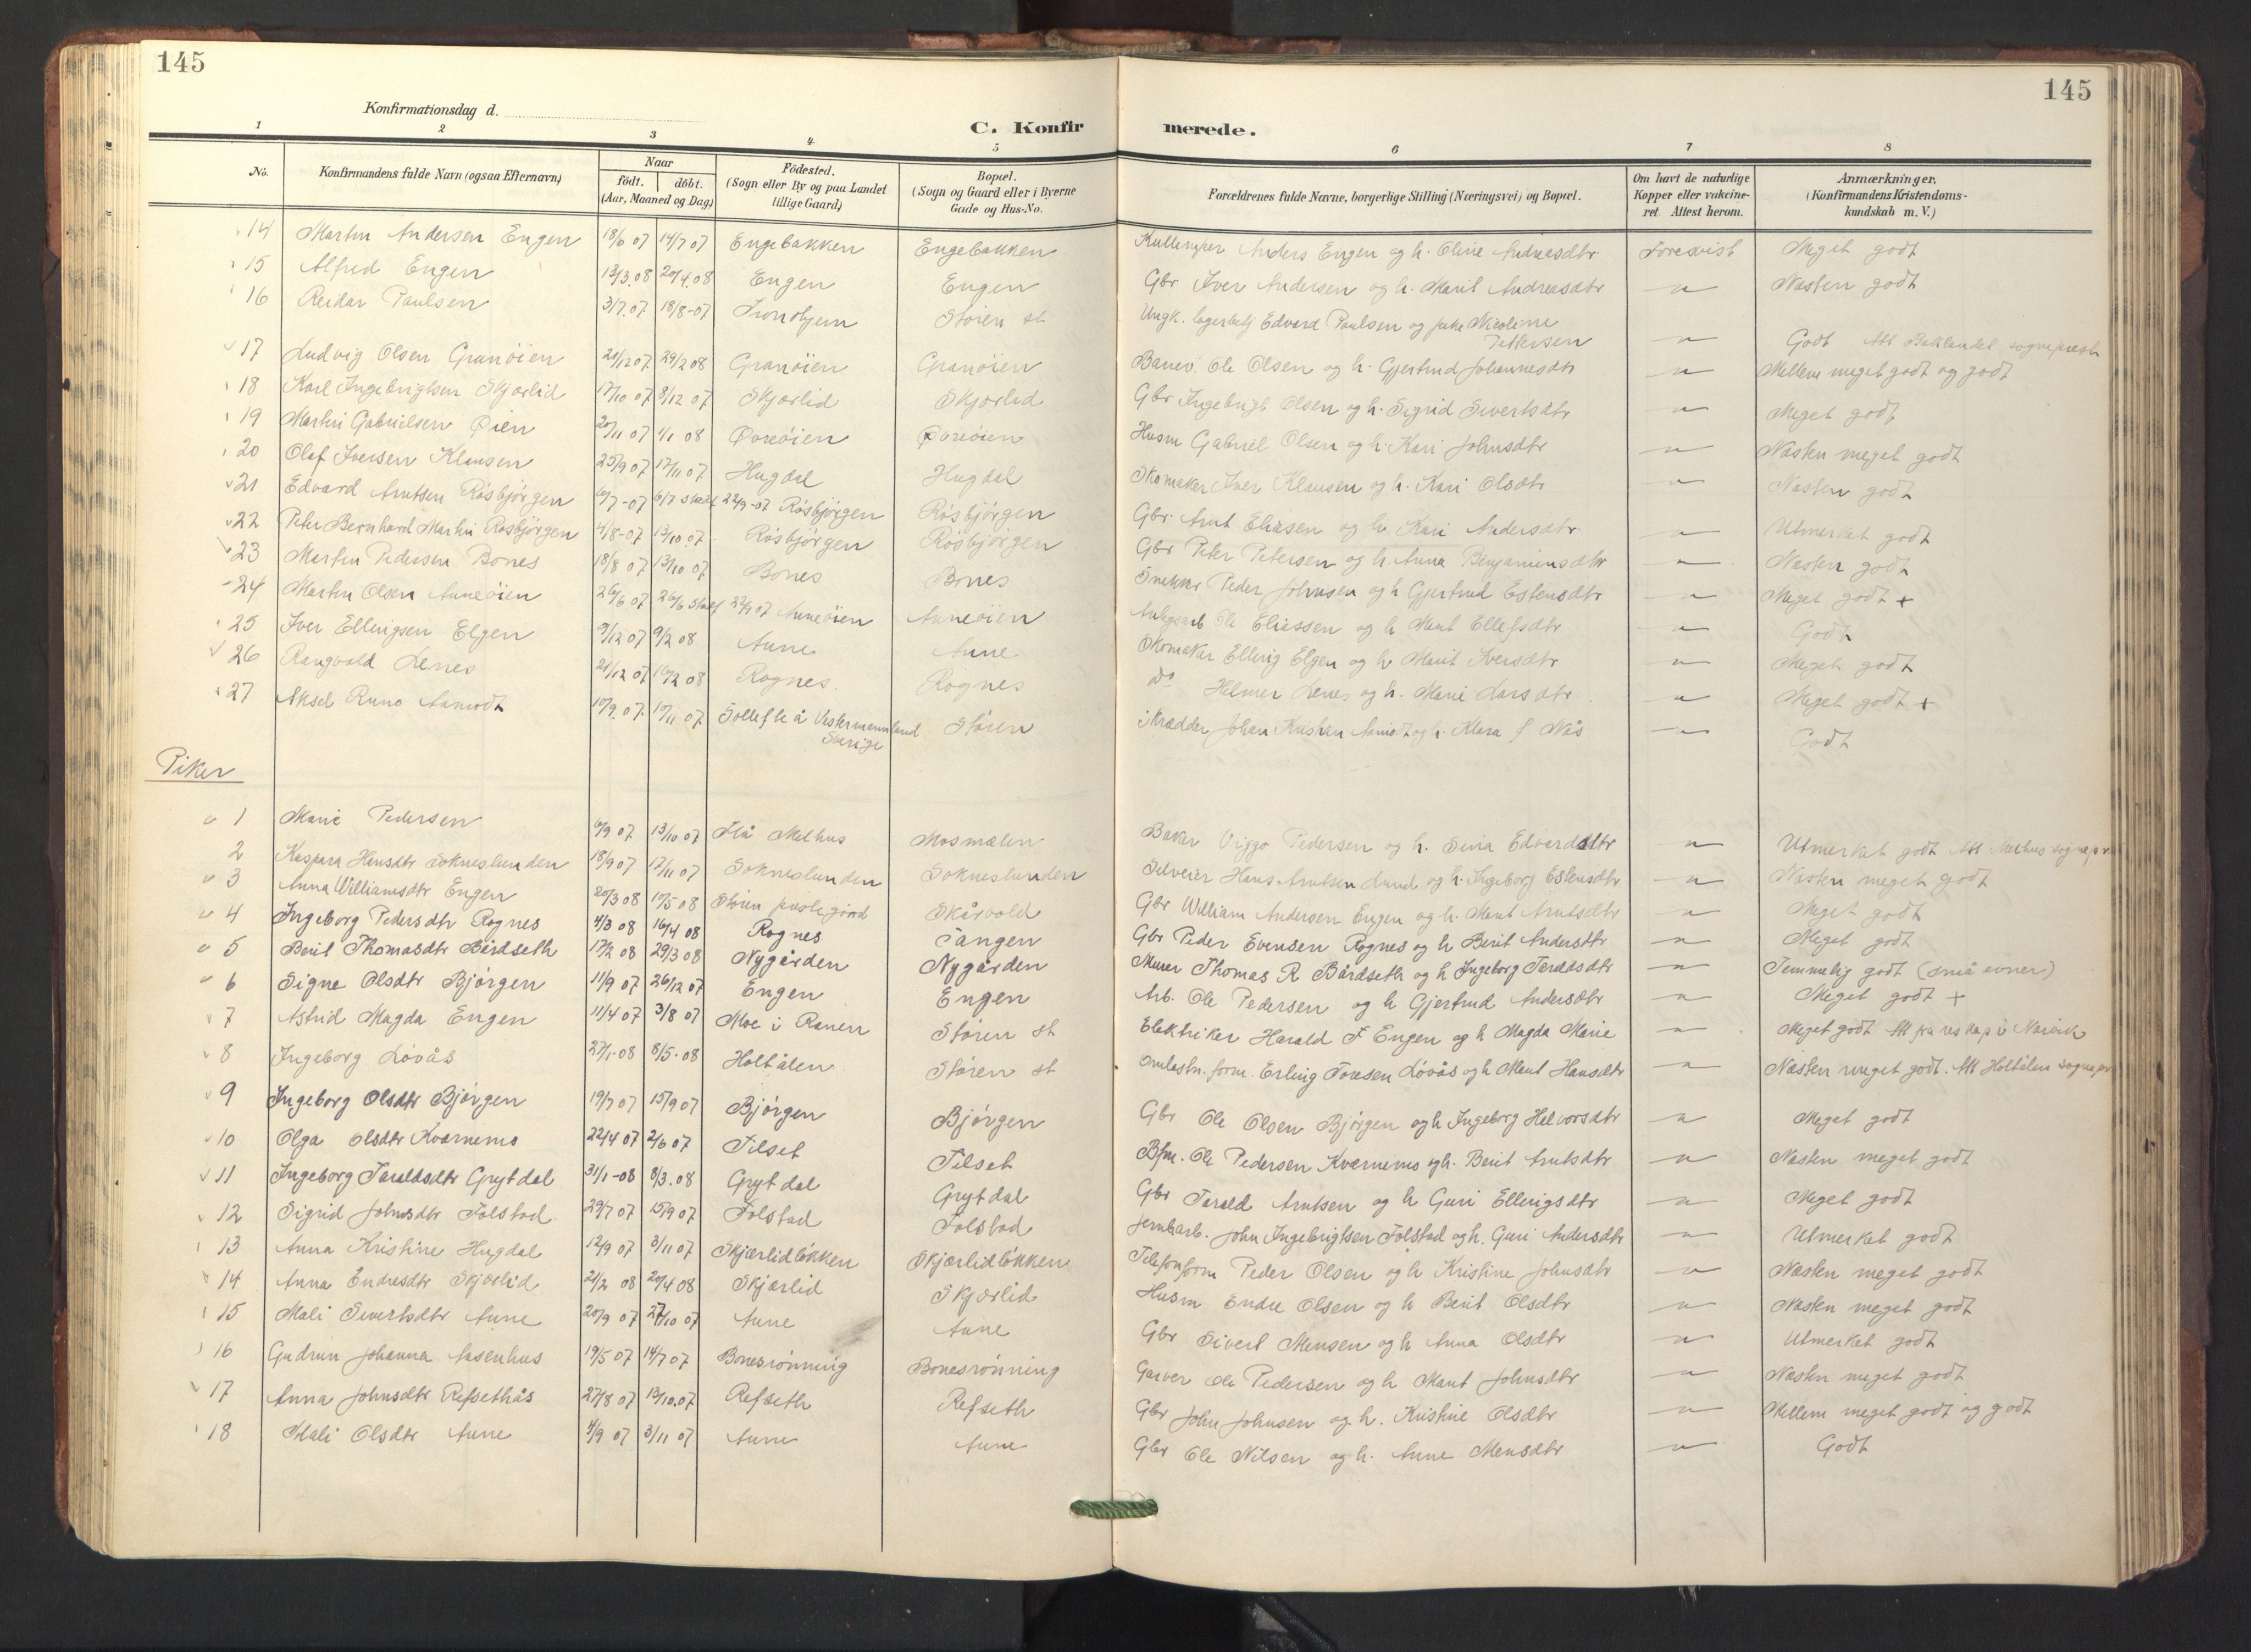 145
145
Konfirmationsdag d.
C. Konfir merede.
1 2 3 4 5 6 7 8
No. Konfirmandens fulde Navn (ogsaa Efternavn) Naar födt. döbt. (Aar, Maaned og Dag) Födested. (Sogn eller By og paa Landet tillige Gaard) Bopæl. (Sogn og Gaard eller i Byerne Gade og Hus-No. Forældrenes fulde Navne, borgerlige Stilling (Næringsvei) og Bopæl. Om havt de naturlige Kopper eller vakcineret Attest herom. Anmærkninger. (Konfirmandens Kristendomskundskab m. V.)
14 Martin Andersen Engen 18/6 07 14/7 07 Engebakken Engebakken Anders Engen og h. Oline Andreasdtr Forevist Meget godt
15 Alfred Engen 13/3.08 20/4.08 Engen Engen Gbr Iver Andersen og h. Marit Andreasdtr " Næsten godt
16 Reidar Paulsen 3/7.07 18/8-07 Støren st Ungk. Edvard Paulsen og pike Nicoline Pettersen " Godt Att Baklandet sogneprest
17 Ludvig Olsen Granöien 21/12 07 29/2 08 Granöien Granöien Banev. Ole Olsen og h. Gjertrud Johannesdtr " Mellem meget godt og godt
18 Karl Ingebrigtsen Skjærlid 17/10 07 8/12 07 Skjærlid Skjærlid Gbr Ingebrigt Olsen og h. Sigrid Sivertsdtr " Meget godt
19 Martin Gabrielsen Øien 20/11 07 1/1 08 Øvreöien Øvreöien Husm Gabriel Olsen og h. Kari Johnsdtr " Næsten meget godt
20 Olaf Iversen Klausen 25/9 07 17/11 07 Hugdal Hugdal Skomaker Iver Klausen og h. Kari Olsdtr " Næsten godt
21 Edvard Arntsen Røsbjørgen 6/7-07 6/7 st 22/9-07 Røsbjørgen Røsbjørgen Gbr. Arnt Eliasen og h. Kari Andersdtr. " Utmerket godt
22 Peter Bernhard Martin Røsbjørgen 4/8-07 13/10 07 Røsbjørgen Røsbjørgen Gbr Peter Petersen og h. Anna Benjaminsdtr " Næsten godt
23 Martin Pedersen Bones 18/8 07 13/10 07 Bones Bones Snekker Peder Johnsen og h Gjertrud Estensdtr " Meget godt +
24 Martin Olsen Auneöien 26/6 07 26/6 22/9 07 Auneöien Auneöien Ole Eliassen og h Marit Ellefsdtr " Godt
25 Iver Ellingsen Elgen 9/12 07 9/2 08 Aune Aune Skomaker Elling Elgen og h Marit Iversdtr " Meget godt
26 Rangvald Lenes 21/12 07 16/2 08 Rognes Rognes Do Helmer Lenes og h. Marie Larsdtr " Meget godt +
27 Aksel Runo Aamodt 10/9.07. 17/11 07. Sollefteå Vestermannland Sverige Støren Skrædder Johan Kristian Aamodt og h. Klara f Nås " Godt
Piker
1 Marie Pedersen 6/9 07 13/10 07 Flå Melhus Mosmælen Baker Viggo Pedersen og h. Sina Edvardsdtr " Utmerket godt Att Melhus sognepr
2 Kaspara Hansdtr Sokneslunden 18/9 07 17/11 07 Sokneslunden Sokneslunden Selveier Hans Arntsen Lund og h. Ingeborg Estensdtr " Næsten meget godt
3 Anna Williamsdtr Engen 20/3 08 17/5 08 Støren prestegård Skårvold Gbr William Andersen Engen og h. Marit Arntsdtr " Meget godt
4 Ingeborg Pedersdtr Rognes 4/3 08 16/4 08 Rognes Tangen Gbr Peder Evensen Rognes og h Berit Andersdtr " Meget godt
5 Berit Thomasdtr Bårdseth 17/2 08 29/3 08 Nygården Nygården Murer Thomas R Bårdseth og h Ingeborg Taraldsdtr " Temmelig godt (små evner)
6 Signe Olsdtr Bjørgen 11/9 07 26/12 07 Engen Engen Arb. Ole Pedersen og h Gjertrud Andersdtr " Meget godt +
7 Astrid Magda Engen 11/4 07 3/8 07 Moe i Ranen Støren st Elektriker Harald F Engen og h Magda Marie " Meget godt Att fra res kap i Narvik
8 Ingeborg Løvås 27/1-08 8/5-08 Holtålen Støren st Omlastn. form. Erling Toresen Løvås og h Marit Hansdtr " Næsten meget godt. Att Holtålen sognepr
9 Ingeborg Olsdtr Bjørgen 19/7 07 15/9 07 Bjørgen Bjørgen Gbr Ole Olsen Bjørgen og h Ingeborg Halvorsdtr " Meget godt
10 Olga Olsdtr Kværnemo 22/4 07 2/6 07 Tilset Tilset Bfm. Ole Pedersen Kværnemo og h. Berit Arntsdtr " Næsten meget godt
11 Ingeborg Taraldsdtr Grytdal 31/1-08 8/3.08 Grytdal Grytdal Gbr Tarald Arntsen og h Guri Ellingsdtr " Meget godt
12 Sigrid Johnsdtr Folstad 23/7 07 15/9 07 Folstad Folstad Jernbarb. John Ingebrigtsen Folstad og h. Guri Andersdtr " Utmerket godt
13 Anna Kristine Hugdal 12/9 07 3/11 07 Skjærlidløkken Skjærlidløkken Telefonform Peder Olsen og h Kristine Johnsdtr " Næsten meget godt
14 Anna Endresdtr Skjærlid 21/2 08 20/4 08 Skjærlid Skjærlid Husm Endre Olsen og h Berit Olsdtr " Næsten meget godt
15 Mali Sivertsdtr Aune 20/9 07 27/10 07 Aune Aune Gbr Sivert Mensen og h Anna Olsdtr " Utmerket godt
16 Gudrun Johanna Aasenhus 19/5 07 14/7 07 Bonesrønning Bonesrønning Garver Ole Pedersen og h Marit Johnsdtr " Næsten meget godt
17 Anna Johnsdtr Refsethås 27/8 07 13/10.07 Refseth Refseth Gbr John Johnsen og h. Kristine Olsdtr " Mellem meget godt og godt
18 Mali Olsdtr Aune 4/9 07 3/11 07 Aune Aune Gbr Ole Nilsen og h. Anne Mensdtr " Godt